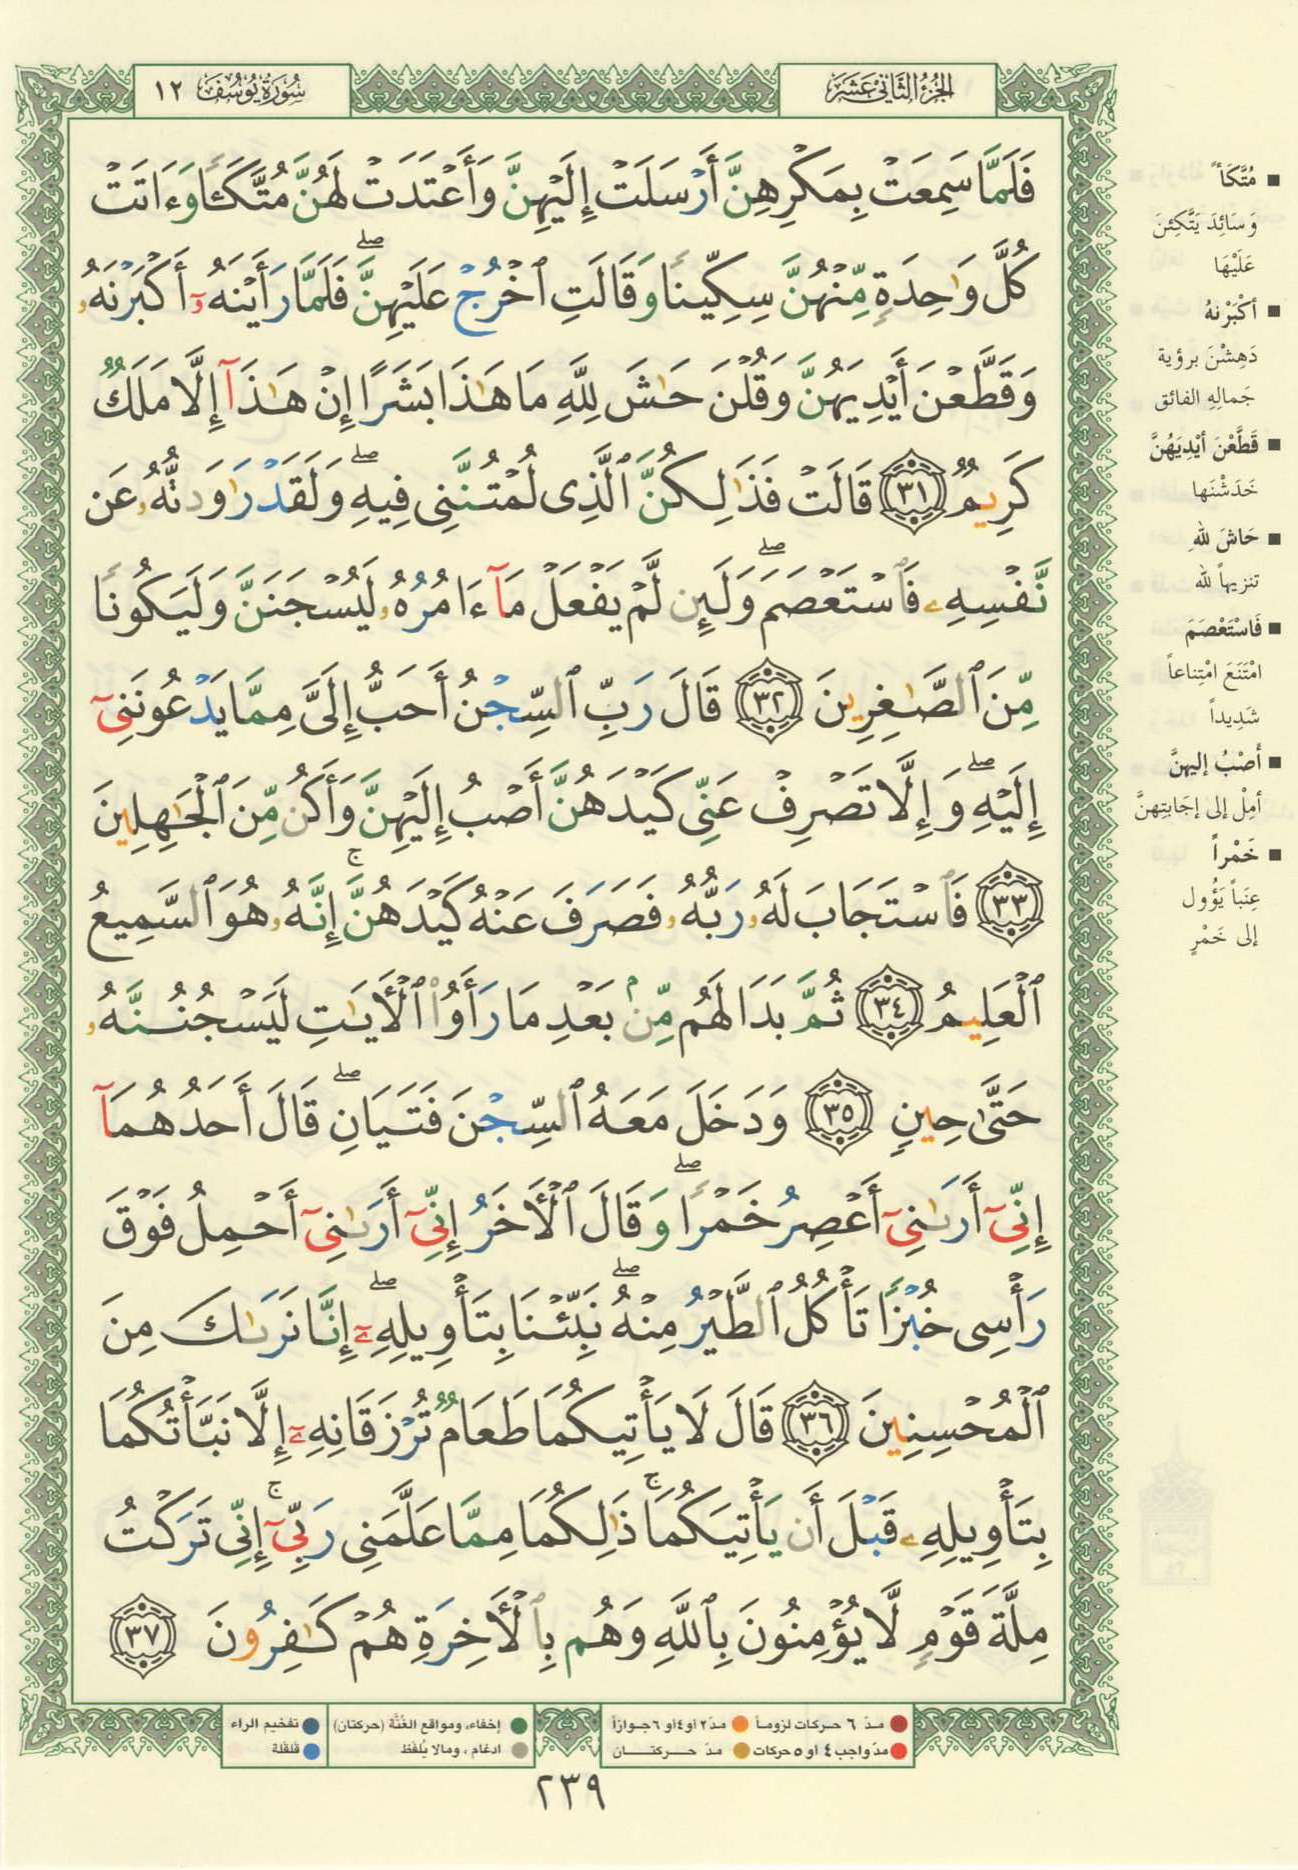 سُورَةُ يُوسُفَ ١٢
الجُزْءُ الثَّانِي عَشَرَ
فَلَمَّا سَمِعَتْ بِمَكْرِهِنَّ أَرْسَلَتْ إِلَيْهِنَّ وَأَعْتَدَتْ لَهُنَّ مُتَّكَـًٔا وَءَاتَتْ
كُلَّ وَٰحِدَةٍ مِّنْهُنَّ سِكِّينًا وَقَالَتِ ٱخْرُجْ عَلَيْهِنَّ ۖ فَلَمَّا رَأَيْنَهُۥٓ أَكْبَرْنَهُۥ
وَقَطَّعْنَ أَيْدِيَهُنَّ وَقُلْنَ حَٰشَ لِلَّهِ مَا هَٰذَا بَشَرًا إِنْ هَٰذَآ إِلَّا مَلَكٌ
كَرِيمٌ ٣١ قَالَتْ فَذَٰلِكُنَّ ٱلَّذِى لُمْتُنَّنِى فِيهِ ۖ وَلَقَدْ رَٰوَدتُّهُۥ عَن
نَّفْسِهِۦ فَٱسْتَعْصَمَ ۖ وَلَئِن لَّمْ يَفْعَلْ مَآ ءَامُرُهُۥ لَيُسْجَنَنَّ وَلَيَكُونًا
مِّنَ ٱلصَّٰغِرِينَ ٣٢ قَالَ رَبِّ ٱلسِّجْنُ أَحَبُّ إِلَىَّ مِمَّا يَدْعُونَنِىٓ
إِلَيْهِ ۖ وَإِلَّا تَصْرِفْ عَنِّى كَيْدَهُنَّ أَصْبُ إِلَيْهِنَّ وَأَكُن مِّنَ ٱلْجَٰهِلِينَ
٣٣ فَٱسْتَجَابَ لَهُۥ رَبُّهُۥ فَصَرَفَ عَنْهُ كَيْدَهُنَّ ۚ إِنَّهُۥ هُوَ ٱلسَّمِيعُ
ٱلْعَلِيمُ ٣٤ ثُمَّ بَدَا لَهُم مِّنۢ بَعْدِ مَا رَأَوُا۟ ٱلْـَٔايَٰتِ لَيَسْجُنُنَّهُۥ
حَتَّىٰ حِينٍ ٣٥ وَدَخَلَ مَعَهُ ٱلسِّجْنَ فَتَيَانِ ۖ قَالَ أَحَدُهُمَآ
إِنِّىٓ أَرَىٰنِىٓ أَعْصِرُ خَمْرًا ۖ وَقَالَ ٱلْـَٔاخَرُ إِنِّىٓ أَرَىٰنِىٓ أَحْمِلُ فَوْقَ
رَأْسِى خُبْزًا تَأْكُلُ ٱلطَّيْرُ مِنْهُ ۖ نَبِّئْنَا بِتَأْوِيلِهِۦٓ ۖ إِنَّا نَرَىٰكَ مِنَ
ٱلْمُحْسِنِينَ ٣٦ قَالَ لَا يَأْتِيكُمَا طَعَامٌ تُرْزَقَانِهِۦٓ إِلَّا نَبَّأْتُكُمَا
بِتَأْوِيلِهِۦ قَبْلَ أَن يَأْتِيَكُمَا ۚ ذَٰلِكُمَا مِمَّا عَلَّمَنِى رَبِّىٓ ۚ إِنِّى تَرَكْتُ
مِلَّةَ قَوْمٍ لَّا يُؤْمِنُونَ بِٱللَّهِ وَهُم بِٱلْـَٔاخِرَةِ هُمْ كَٰفِرُونَ ٣٧
■ مُتَّكَأً
وَسَائِدَ يَتَّكِئنَ
عَلَيْهَا
■ أكْبَرْنهُ
دَهِشْنَ برؤية
جَمالِهِ الفائق
■ قَطَّعْنَ أيْدِيَهُنَّ
خَدَشْنَها
■ حَاشَ للهِ
تنزيهاً لله
■ فَاسْتَعْصَمَ
امْتَنَعَ امْتِناعاً
شَدِيداً
■ أَصْبُ إليهنَّ
أمِلْ إلى إجَابتِهنَّ
■ خَمْراً
عِنَباً يَؤُول
إلى خَمْرٍ
مدّ ٦ حركات لزوماً ● مدّ ٢ أو ٤ أو ٦ جوازاً
مدّ واجب ٤ أو ٥ حركات ● مدّ حركتان
إخفاء، ومواقع الغُنَّة (حركتان) ● تفخيم الراء
ادغام، ومالا يُلفَظ ● قلقلة
٢٣٩